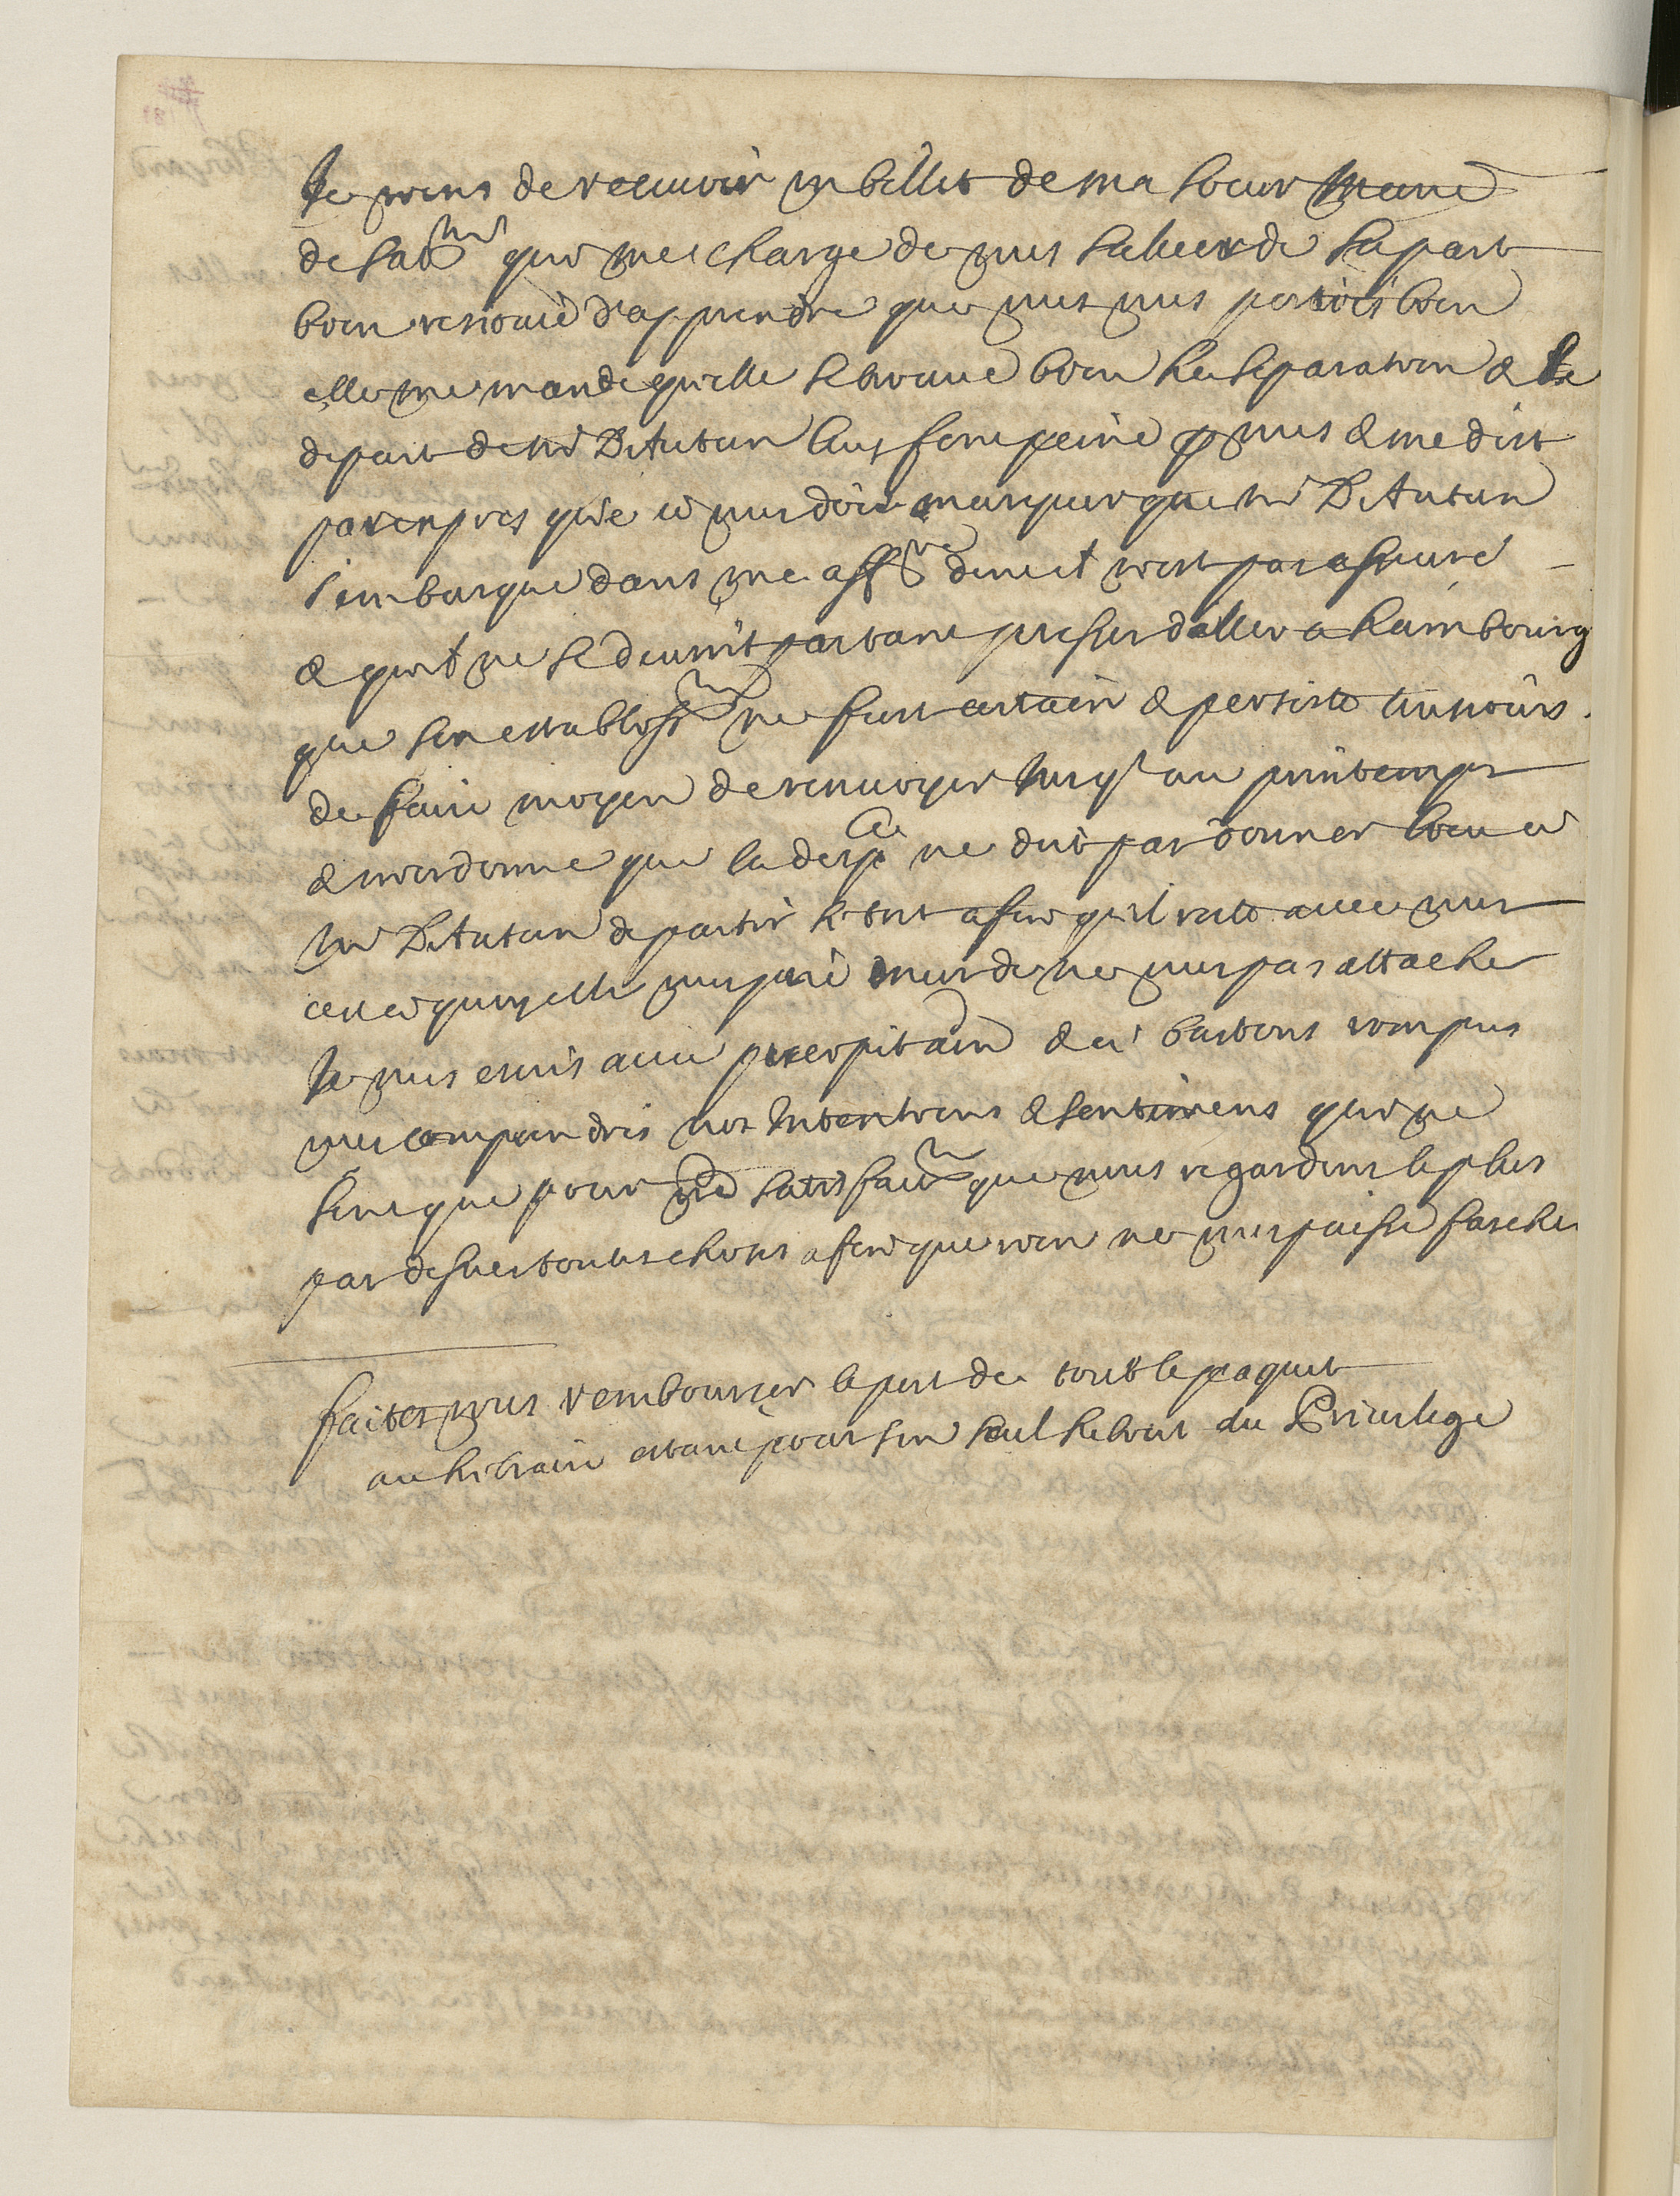 Je viens de recevoir un billet de ma soeur Marie
de Sab que me charge de vous saluer de sa part
bien resiouie d'apprendre que vous vous portiez bien
elle me mande qu'elle se trouve bien la separation & le
depart de Mr D'Autun luy font peine pr vous & me dist
par expres que ie vous dois marquer que Mr D'Autun
s'embarque dans une aff.re dont il n'est pas asseuré
& qu'il ne se devroit pas tant presser d'aller a Hambourg
que son establissmt ne fust certain & persiste tousiours
de faire moyen de renvoyer jusq' au printemps
& m'ordonne que la desp ne doit pas donner lieu a
Mr D'Autun de partir si tost afin qu'il reste avec vous
 vous prie de ne vous pas attacher
Je vous escris avec precipitaon & a bastons rompus
vous comprendres nos Intentions & sentimens qui ne
sont que pour vre satisfaon que nous regardons le plus
par dessus toutes choses afin que rien ne vous puisse fascher
faites vous rembourser le port de tout le paquet
au libraire estant pour son seul du Privilege